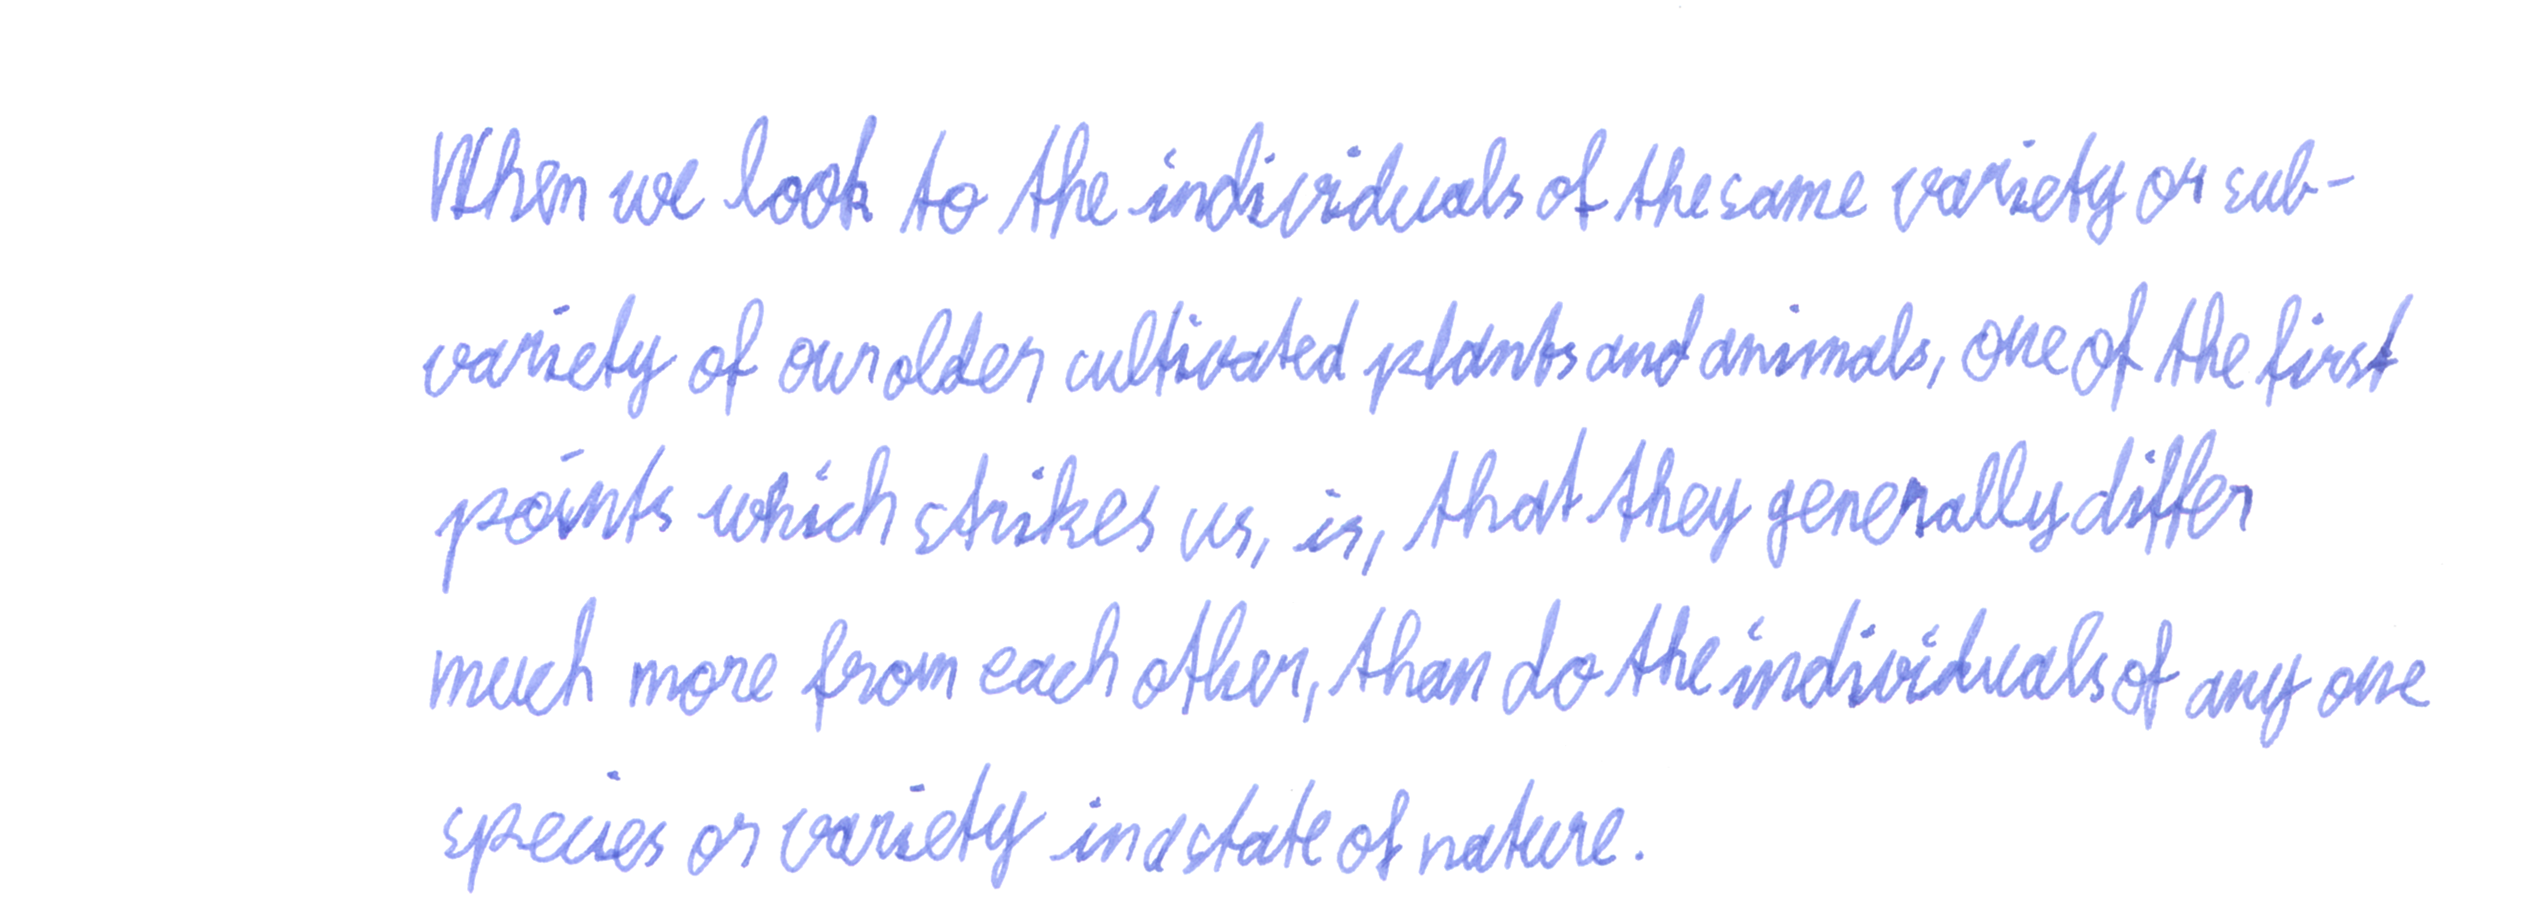 When we look to the individuals of the same variety or sub-
variety of our older cultivated plants and animals, one of the first
points which strikes us, is, that they generally differ
much more from each other, than do the individuals of any one
species or variety in a state of nature.